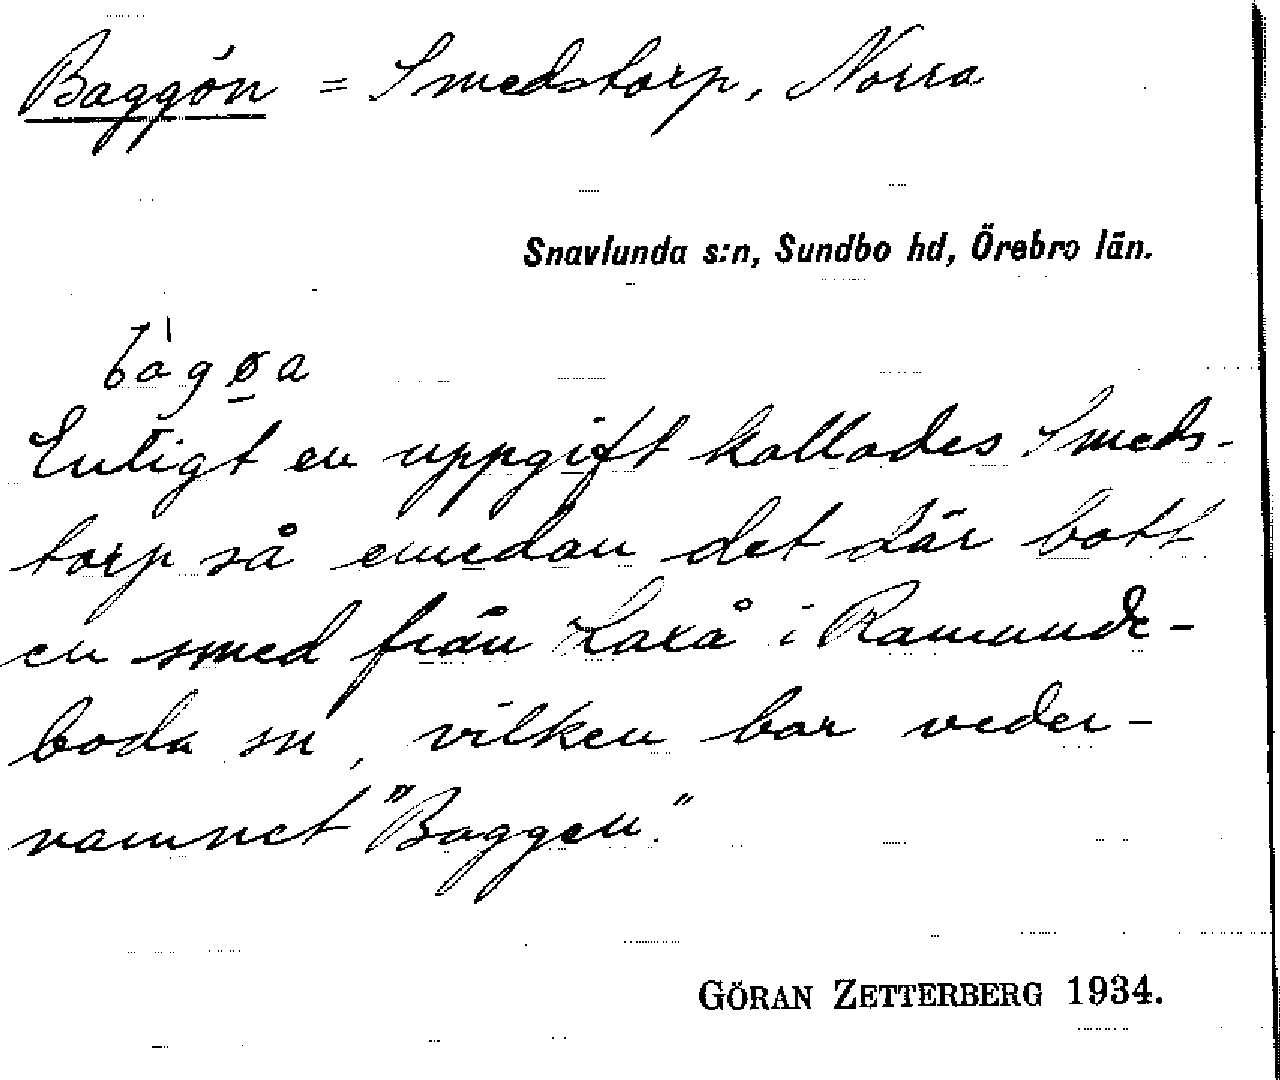 Baggón = Smedstorp, Norra
Snavlunda s:n, Sundbo hd, Örebro län.
Enligt en uppgift kallades Smeds-
torp så emedan det där bott
en smed från Laxå i Ramunde-
boda sn, vilken bar veder-
namnet "Baggen."
GÖRAN ZETTERBERG 1934.